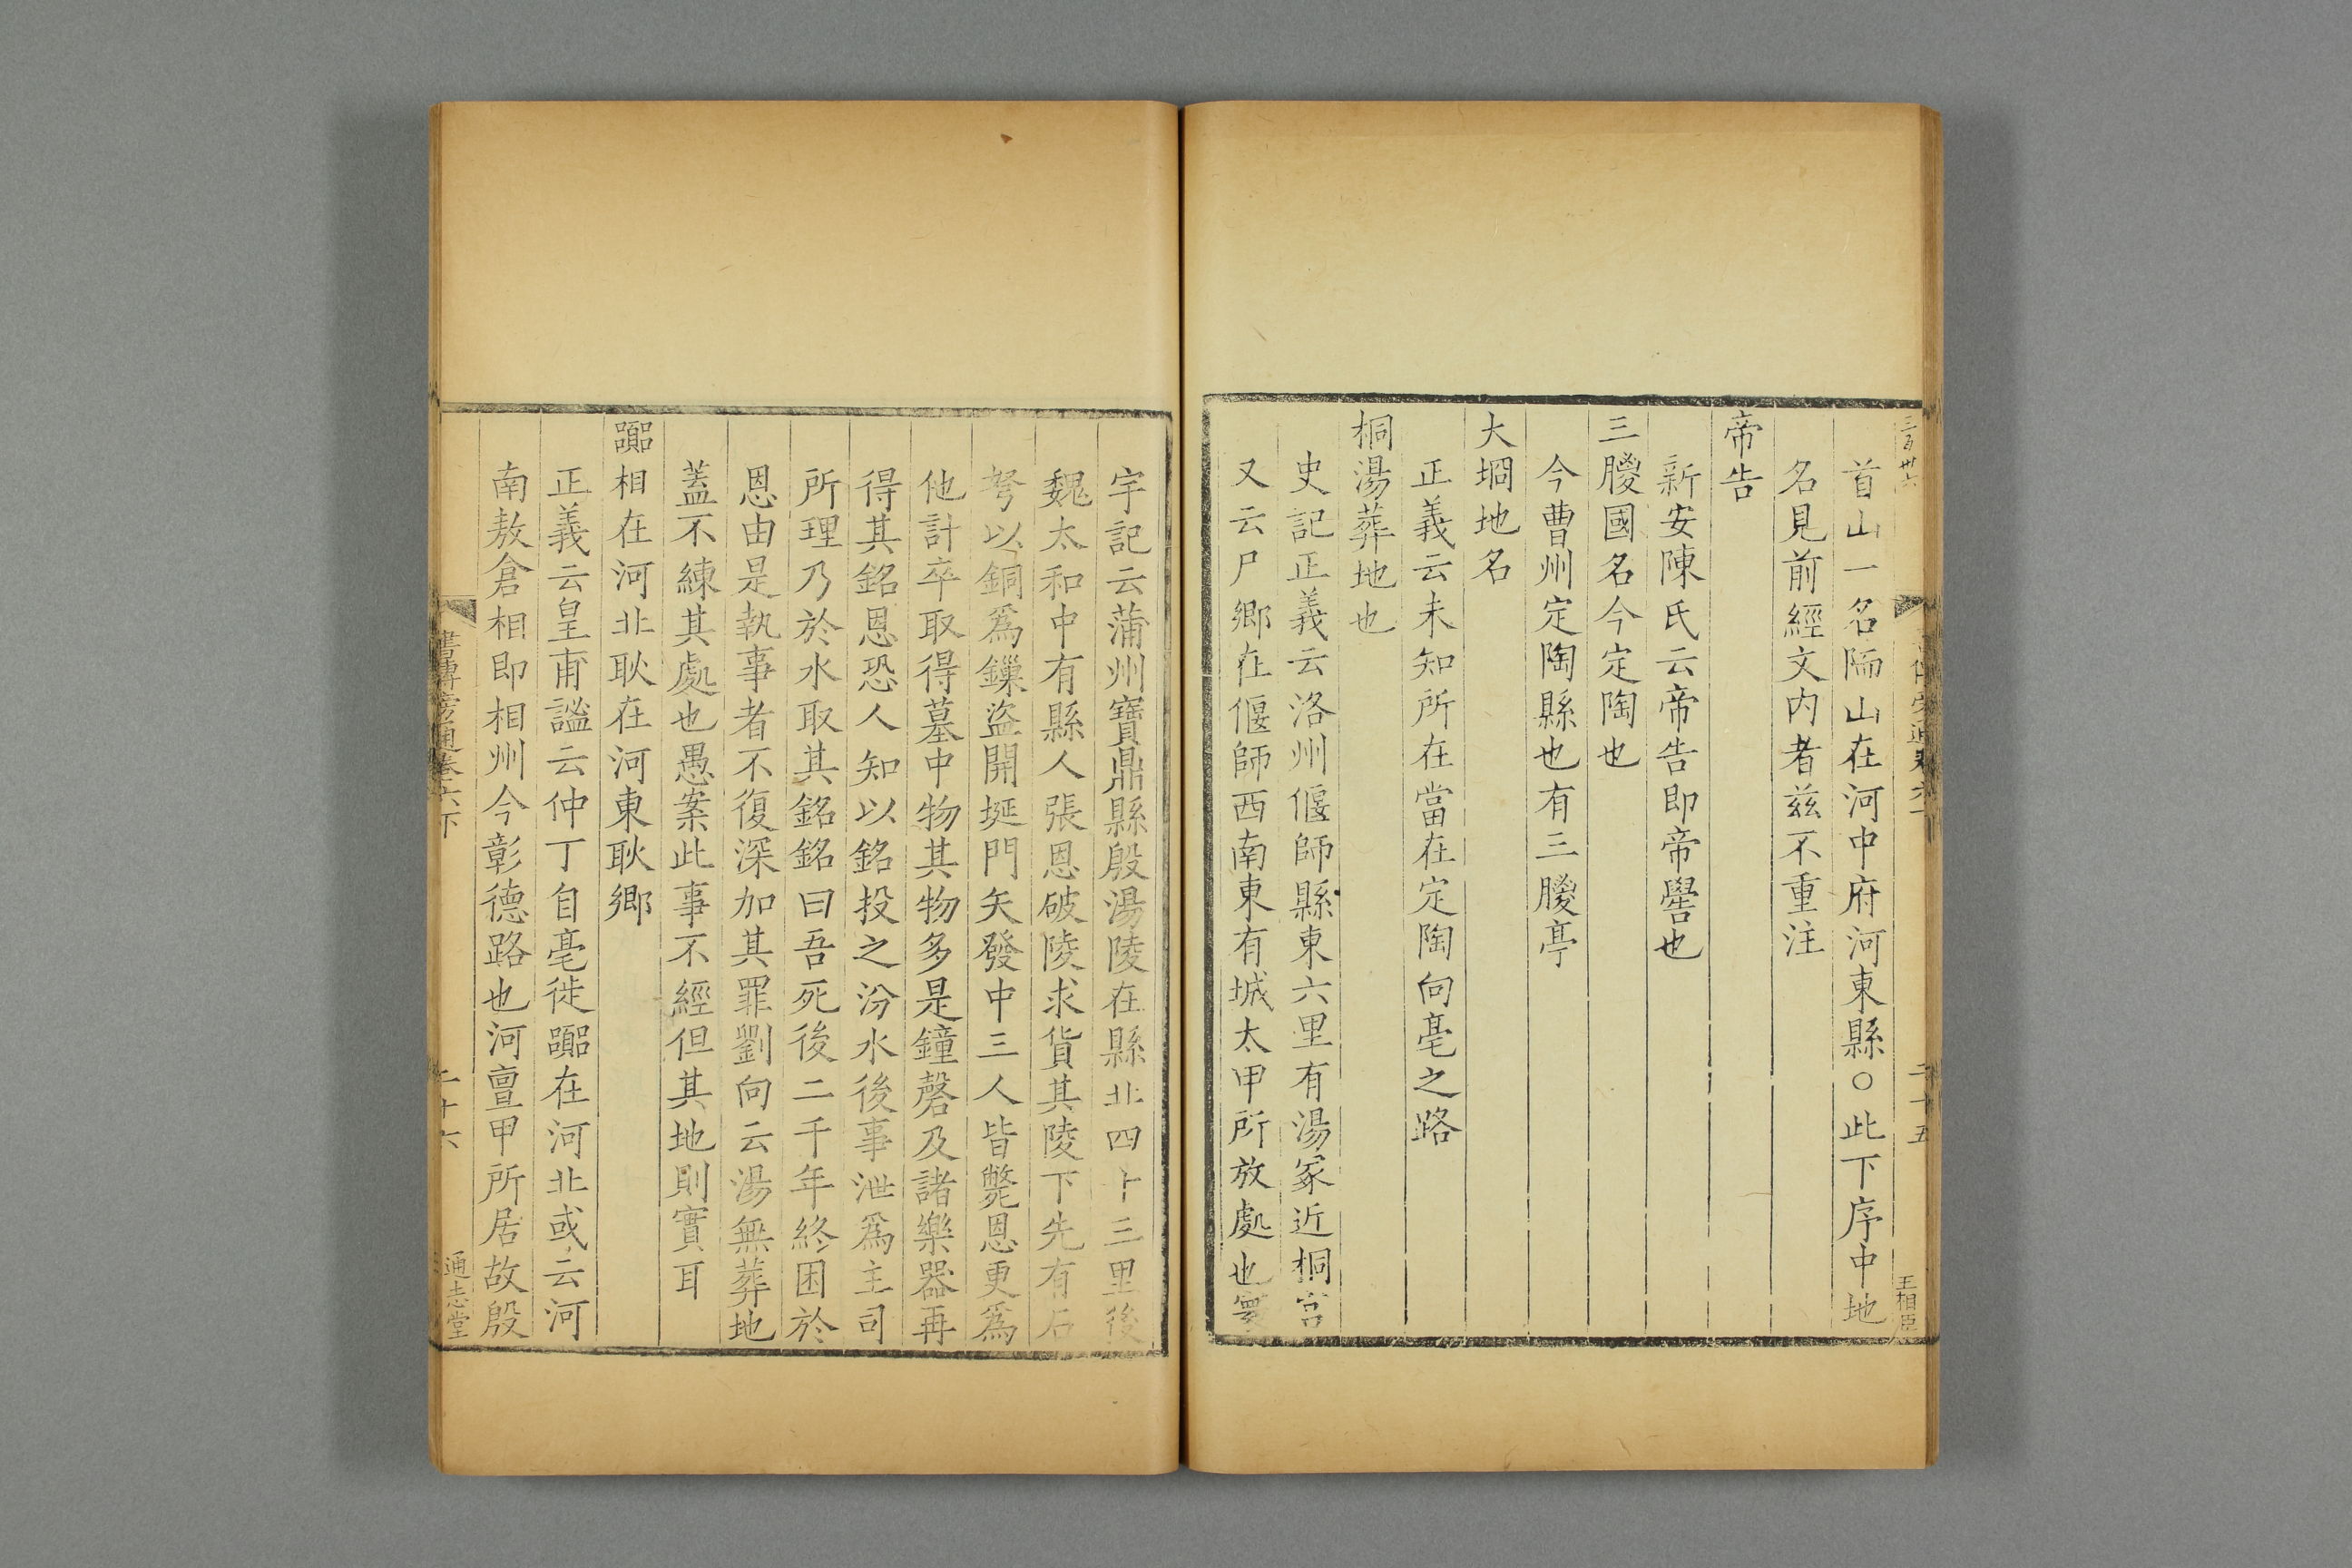 首山一名陑山在河中府河東縣○此下序中地
名見前經文内者兹不重注
帝告
新安陳氏云帝告即帝嚳也
三朡國名今定陶也
今曹州定陶縣也有三朡亭
大坰地名
正義云未知所在當在定陶向亳之路
桐湯葬地也
史記正義云洛州偃師縣東六里有湯冢近桐宫
又云尸鄉在偃師西南東有城太甲所放處也寰
王相臣
宇記云蒲州寶鼎縣殷湯陵在縣北四十三里後
魏太和中有縣人張恩破陵求貨其陵下先有石
弩以銅爲鏁盜開埏門矢發中三人皆斃恩更爲
他計卒取得墓中物其物多是鐘磬及諸樂器再
得其銘恩恐人知以銘投之汾水後事泄爲主司
所理乃於水取其銘銘曰吾死後二千年終困於
恩由是執事者不復深加其罪劉向云湯無葬地
蓋不練其處也愚案此事不經但其地則實耳
嚻相在河北耿在河東耿鄉
正義云皇甫謐云仲丁自亳徙嚻在河北或云河
南敖倉相即相州今彰德路也河亶甲所居故殷
書傳旁通卷六下
二十六
通志堂